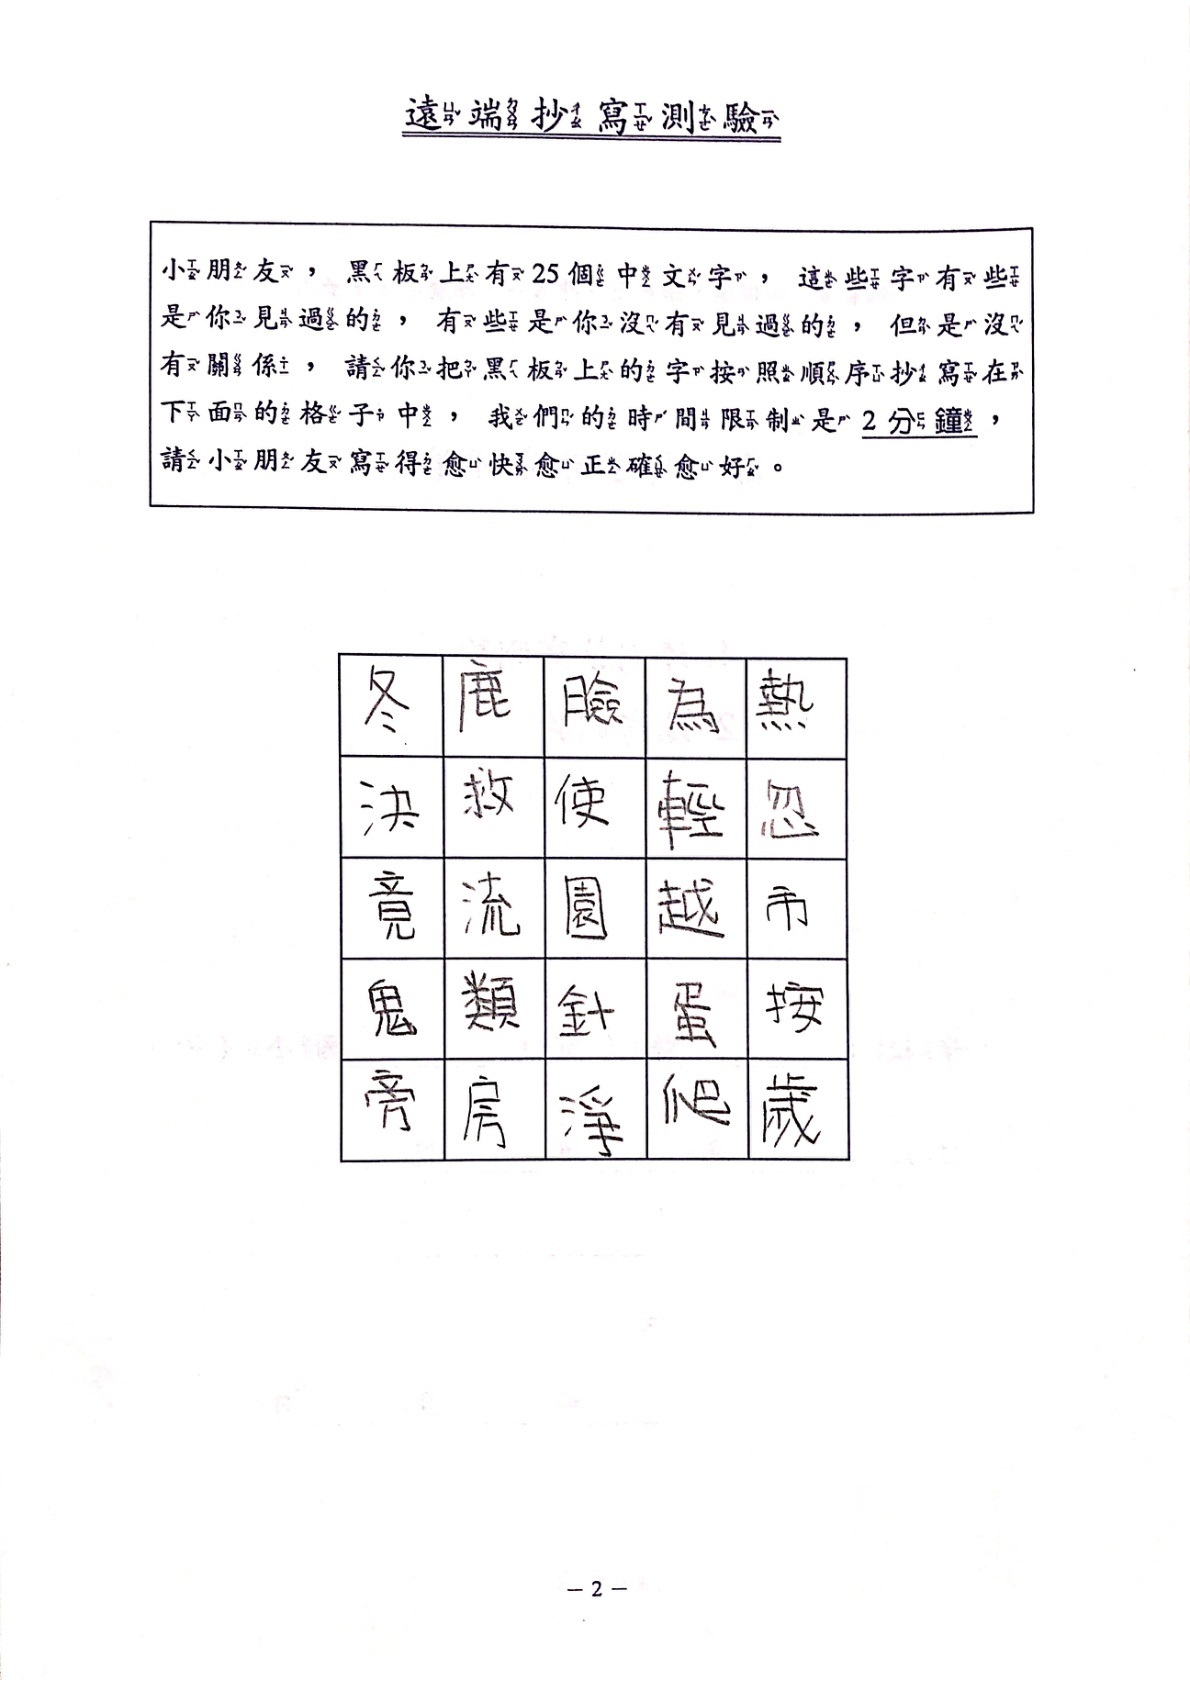 遠端抄寫測驗
小朋友，黑板上有25個中文字，這些字有些
是你見過的，有些是你沒有見過的，但是沒
有關係，請你把黑板上的字按照順序抄寫在
下面的格子中，我們的時間限制是2分鐘，
請小朋友寫得愈快愈正確愈好。
冬 鹿 臉 為 熱
決 救 使 輕 忽
竟 流 園 越 市
鬼 類 針 蛋 按
旁 房 淨 爬 歲
— 2 —